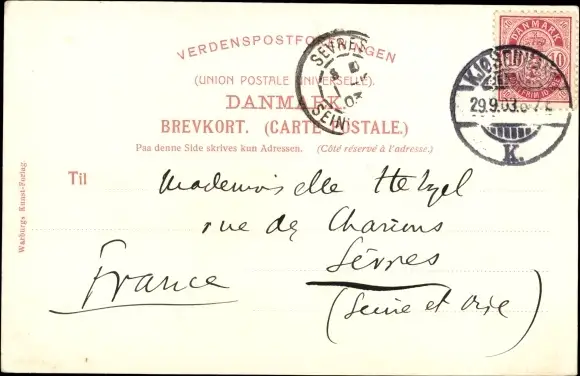 VERDENSPOSTFORENINGEN
(UNION POSTALE UNIVERSELLE).
DANMARK.
BREVKORT. (CARTE POSTALE.)
Paa denne Side skrives kun Adressen. (Côté réservé à l'adresse.)
SÈVRES
SEINE
DANMARK
10
KJØBENHAVN
29.9.03.
K.
Warburgs Kunst-Forlag.
Til
Mademoiselle Hetzel
rue des
Sèvres
France
(Seine et Oise)